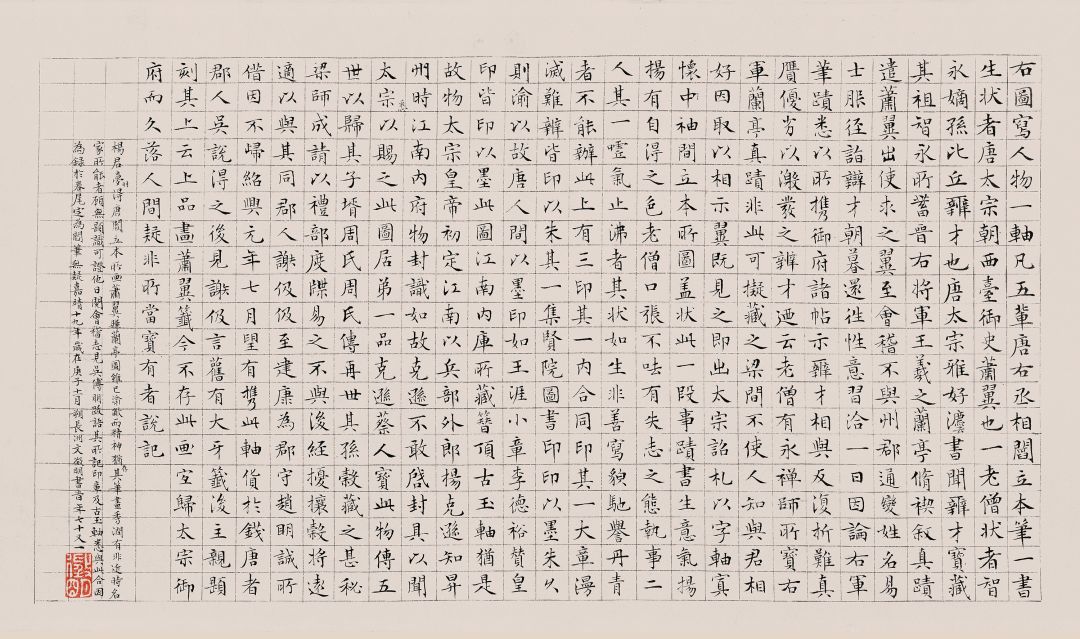 右圖寫人物一軸凡五輩唐右丞相閻立本筆一書
生狀者唐太宗朝西臺御史蕭翼也一老僧狀者智
永嫡孫比丘辨才也唐太宗雅好灋書聞辨才寶藏
其祖智永所蓄晉右將軍王羲之蘭亭脩禊敘真蹟
遣蕭翼出使求之翼至會稽不與州郡通變姓名易
士服徑詣辯才朝暮還徃性意習洽一日因論右軍
筆蹟悉以所攜御府諸帖示辨才相與反復折難真
贗優劣以激發之辨才迺云老僧有永禪師所寶右
軍蘭亭真蹟非此可擬藏之梁間不使人知與君相
好因取以相示翼既見之即出太宗詔札以字軸寘
懷中袖間立本所圖盖狀此一段事蹟書生意氣揚
揚有自得之色老僧口張不呿有失志之態執事二
人其一噓氣止沸者其狀如生非善寫貌馳譽丹青
者不能辦此上有三印其一內合同印其一大章漫
滅難辨皆印以朱其一集賢院圖書印印以墨朱久
則渝以故唐人間以墨印如王涯小章李德裕贊皇
印皆印以墨此圖江南內庫所藏簪頂古玉軸猶是
故物太宗皇帝初定江南以兵部外郎揚克遜知昇
州時江南內府物封識如故克遜不敢啟封具以聞
太宗悉以賜之此圖居弟一品克遜蔡人寶此物傳五
世以歸其子壻周氏周氏傳再世其孫榖藏之甚秘
梁師成請以禮部度牒易之不與後經擾攘榖將遠
適以與其同郡人謝伋伋至建康為郡守趙明誠所
借因不歸紹興元年七月望有携此軸貨於錢唐者
郡人吳說得之後見謝伋言舊有大牙籤後主親題
刻其上云上品畫蕭翼籤今不存此画宜歸太宗御
府而久落人間疑非所當寶有者說記
楊君夢羽得唐閻立本所画蕭翼賺蘭亭圖雖已渝敝而精神猶在其筆畫秀潤有非近時名
家所能者顧無題識可證他日閱會稽志見吳傅朋跋語其所記印章及古玉軸悉與此合因
為錄於卷尾定為閻筆無疑嘉靖十九年歲在庚子十月朔長洲文徵明書旹年七十又一
徵明